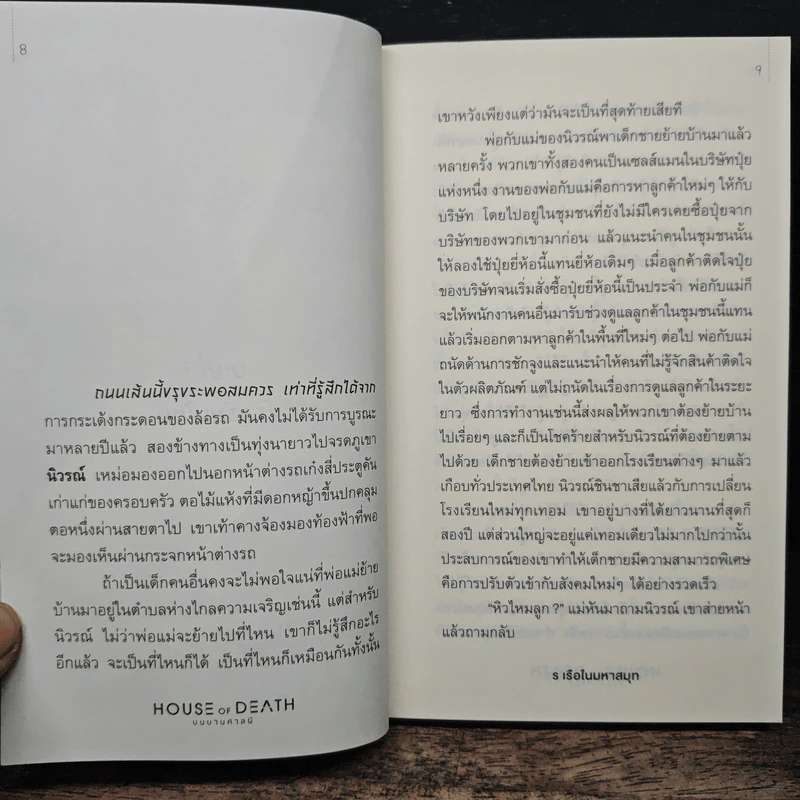 8
ถนนเส้นนี้ขรุขระพอสมควร เท่าที่รู้สึกได้จาก
การกระเด้งกระดอนของล้อรถ มันคงไม่ได้รับการบูรณะ
มาหลายปีแล้ว สองข้างทางเป็นทุ่งนายาวไปจรดภูเขา
นิวรณ์ เหม่อมองออกไปนอกหน้าต่างรถเก๋งสี่ประตูคัน
เก่าแก่ของครอบครัว ตอไม้แห้งที่มีดอกหญ้าขึ้นปกคลุม
ตอหนึ่งผ่านสายตาไป เขาเท้าคางจ้องมองท้องฟ้าที่พอ
จะมองเห็นผ่านกระจกหน้าต่างรถ
ถ้าเป็นเด็กคนอื่นคงจะไม่พอใจแน่ที่พ่อแม่ย้าย
บ้านมาอยู่ในตำบลห่างไกลความเจริญเช่นนี้ แต่สำหรับ
นิวรณ์ ไม่ว่าพ่อแม่จะย้ายไปที่ไหน เขาก็ไม่รู้สึกอะไร
อีกแล้ว จะเป็นที่ไหนก็ได้ เป็นที่ไหนก็เหมือนกันทั้งนั้น
HOUSE OF DEATH
บนบานศาลผี
9
เขาหวังเพียงแต่ว่ามันจะเป็นที่สุดท้ายเสียที
พ่อกับแม่ของนิวรณ์พาเด็กชายย้ายบ้านมาแล้ว
หลายครั้ง พวกเขาทั้งสองคนเป็นเซลส์แมนในบริษัทปุ๋ย
แห่งหนึ่ง งานของพ่อกับแม่คือการหาลูกค้าใหม่ๆ ให้กับ
บริษัท โดยไปอยู่ในชุมชนที่ยังไม่มีใครเคยซื้อปุ๋ยจาก
บริษัทของพวกเขามาก่อน แล้วแนะนำคนในชุมชนนั้น
ให้ลองใช้ปุ๋ยยี่ห้อนี้แทนยี่ห้อเดิมๆ เมื่อลูกค้าติดใจปุ๋ย
ของบริษัทจนเริ่มสั่งซื้อปุ๋ยยี่ห้อนี้เป็นประจำ พ่อกับแม่ก็
จะให้พนักงานคนอื่นมารับช่วงดูแลลูกค้าในชุมชนนี้แทน
แล้วเริ่มออกตามหาลูกค้าในพื้นที่ใหม่ๆ ต่อไป พ่อกับแม่
ถนัดด้านการชักจูงและแนะนำให้คนที่ไม่รู้จักสินค้าติดใจ
ในตัวผลิตภัณฑ์ แต่ไม่ถนัดในเรื่องการดูแลลูกค้าในระยะ
ยาว ซึ่งการทำงานเช่นนี้ส่งผลให้พวกเขาต้องย้ายบ้าน
ไปเรื่อยๆ และก็เป็นโชคร้ายสำหรับนิวรณ์ที่ต้องย้ายตาม
ไปด้วย เด็กชายต้องย้ายเข้าออกโรงเรียนต่างๆ มาแล้ว
เกือบทั่วประเทศไทย นิวรณ์ชินชาเสียแล้วกับการเปลี่ยน
โรงเรียนใหม่ทุกเทอม เขาอยู่บางที่ได้ยาวนานที่สุดก็
สองปี แต่ส่วนใหญ่จะอยู่แค่เทอมเดียวไม่มากไปกว่านั้น
ประสบการณ์ของเขาทำให้เด็กชายมีความสามารถพิเศษ
คือการปรับตัวเข้ากับสังคมใหม่ๆ ได้อย่างรวดเร็ว
"หิวไหมลูก?" แม่หันมาถามนิวรณ์ เขาส่ายหน้า
แล้วถามกลับ
ร เรือในมหาสมุท